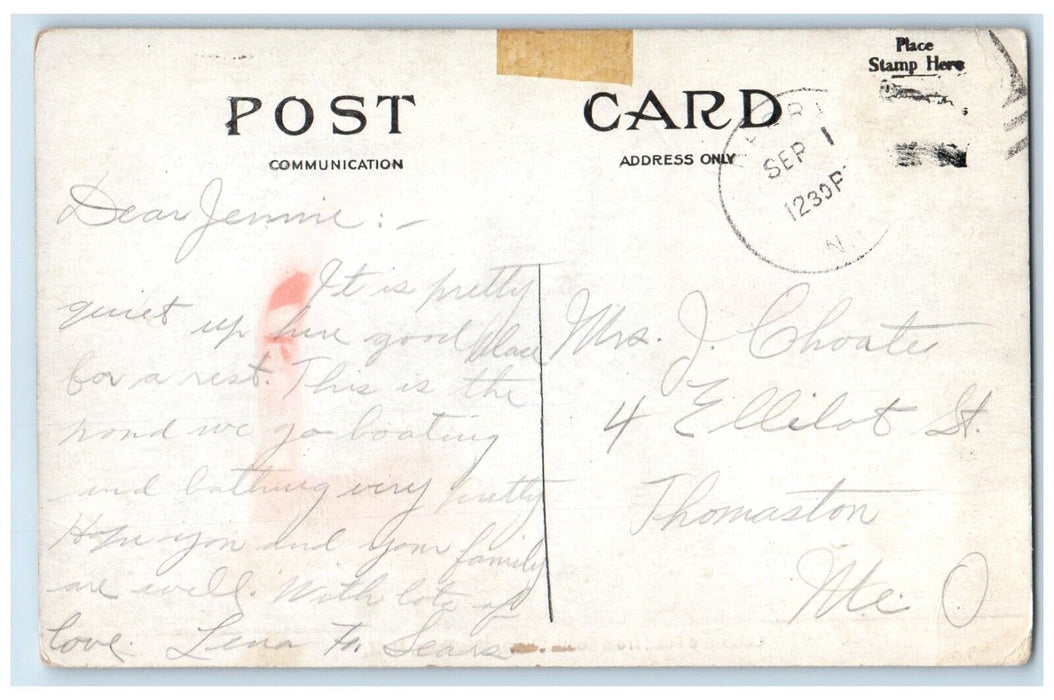 Place
Stamp Here
POST CARD
COMMUNICATION
ADDRESS ONLY
SEP 1
1230P
N.
Dear Jennie :-
It is pretty
quiet up here good place
for a rest. This is the
pond we go boating
and bathing very pretty
Hope you and your family
are well. With lots of
love. Lena Sears
Mrs. J. Choate
4 Ellilot St.
Thomaston
Me.